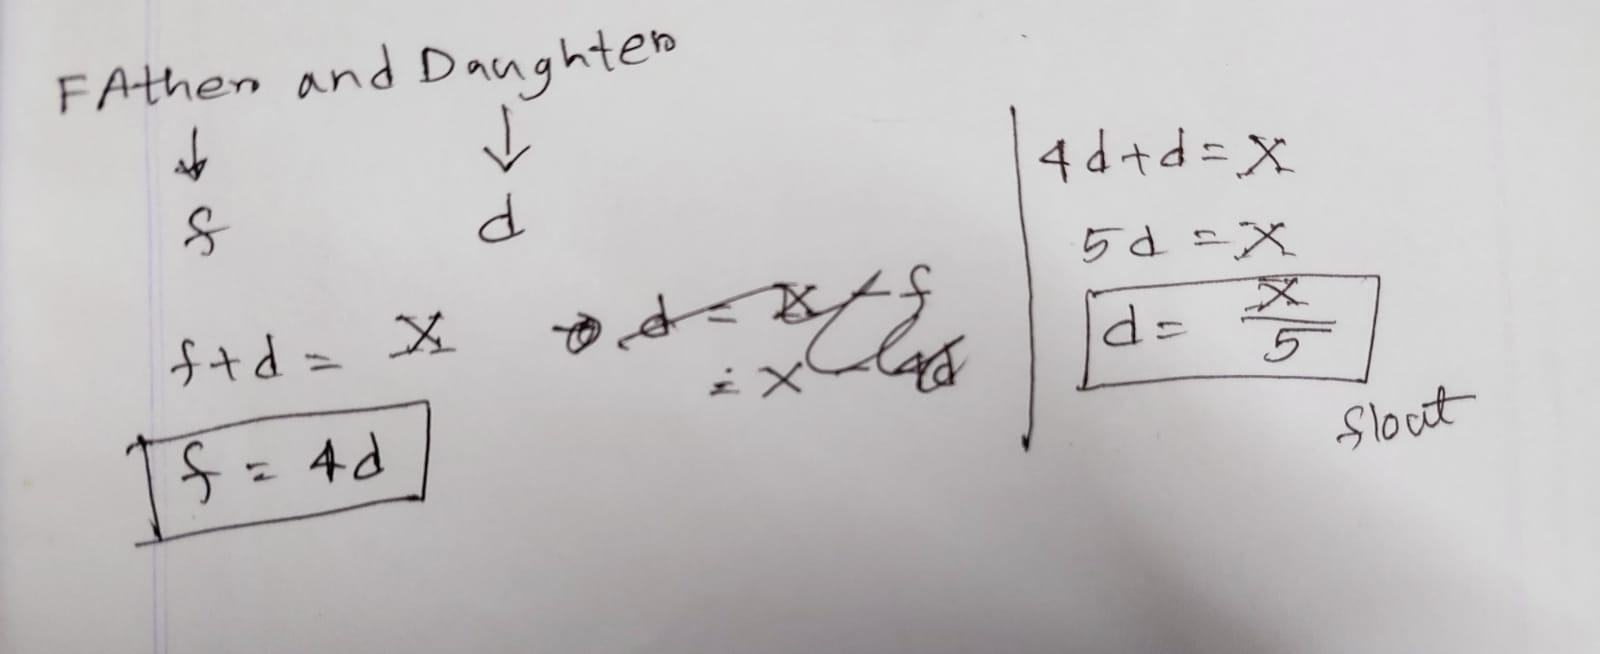 FAther and Daughter
↓ ↓
f d
f+d = X
d = X - f
= X
f = 4d
4d+d=X
5d = X
d = X/5
float